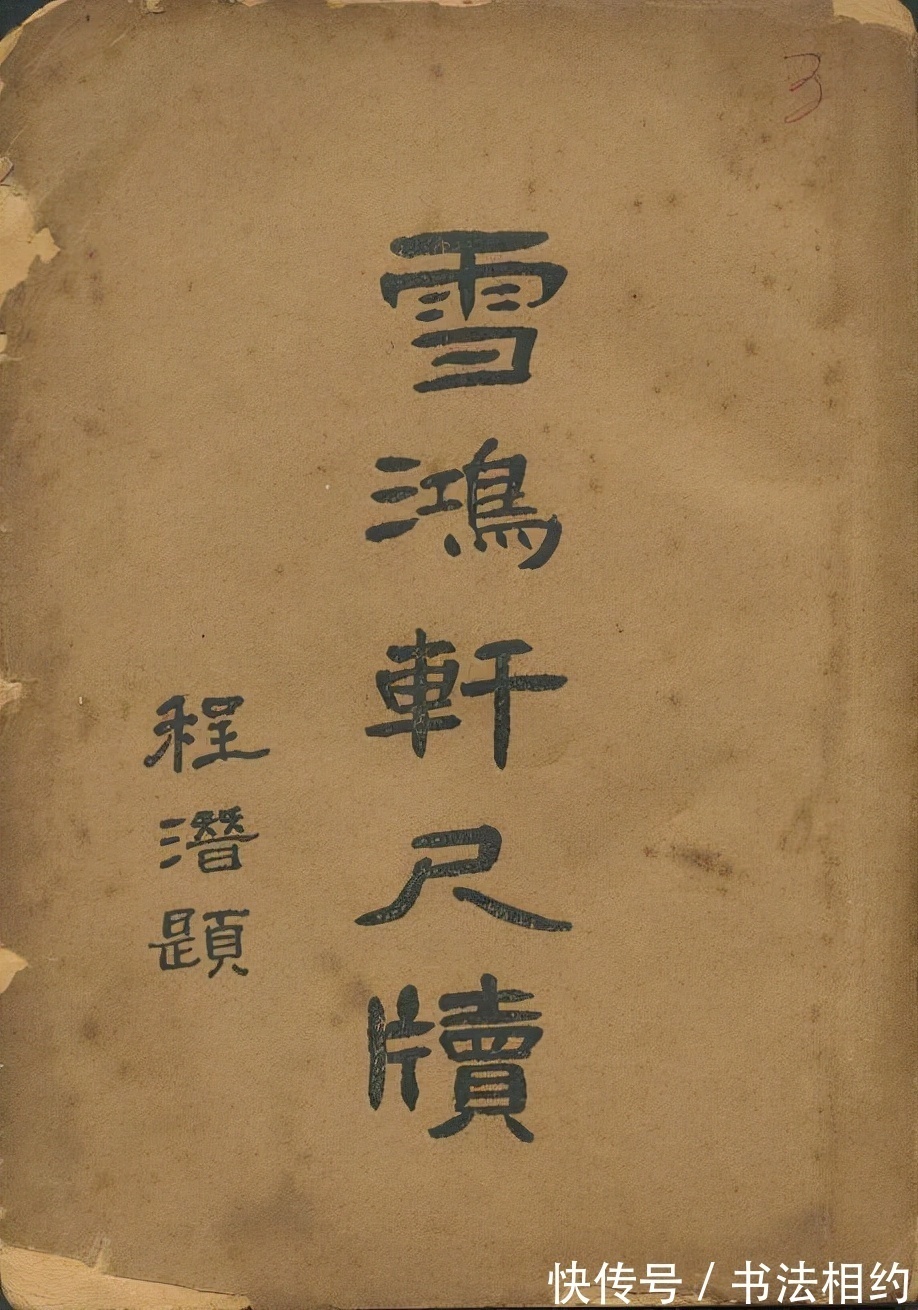 3
雪鴻軒尺牘
程潛題
快传号 / 书法相约